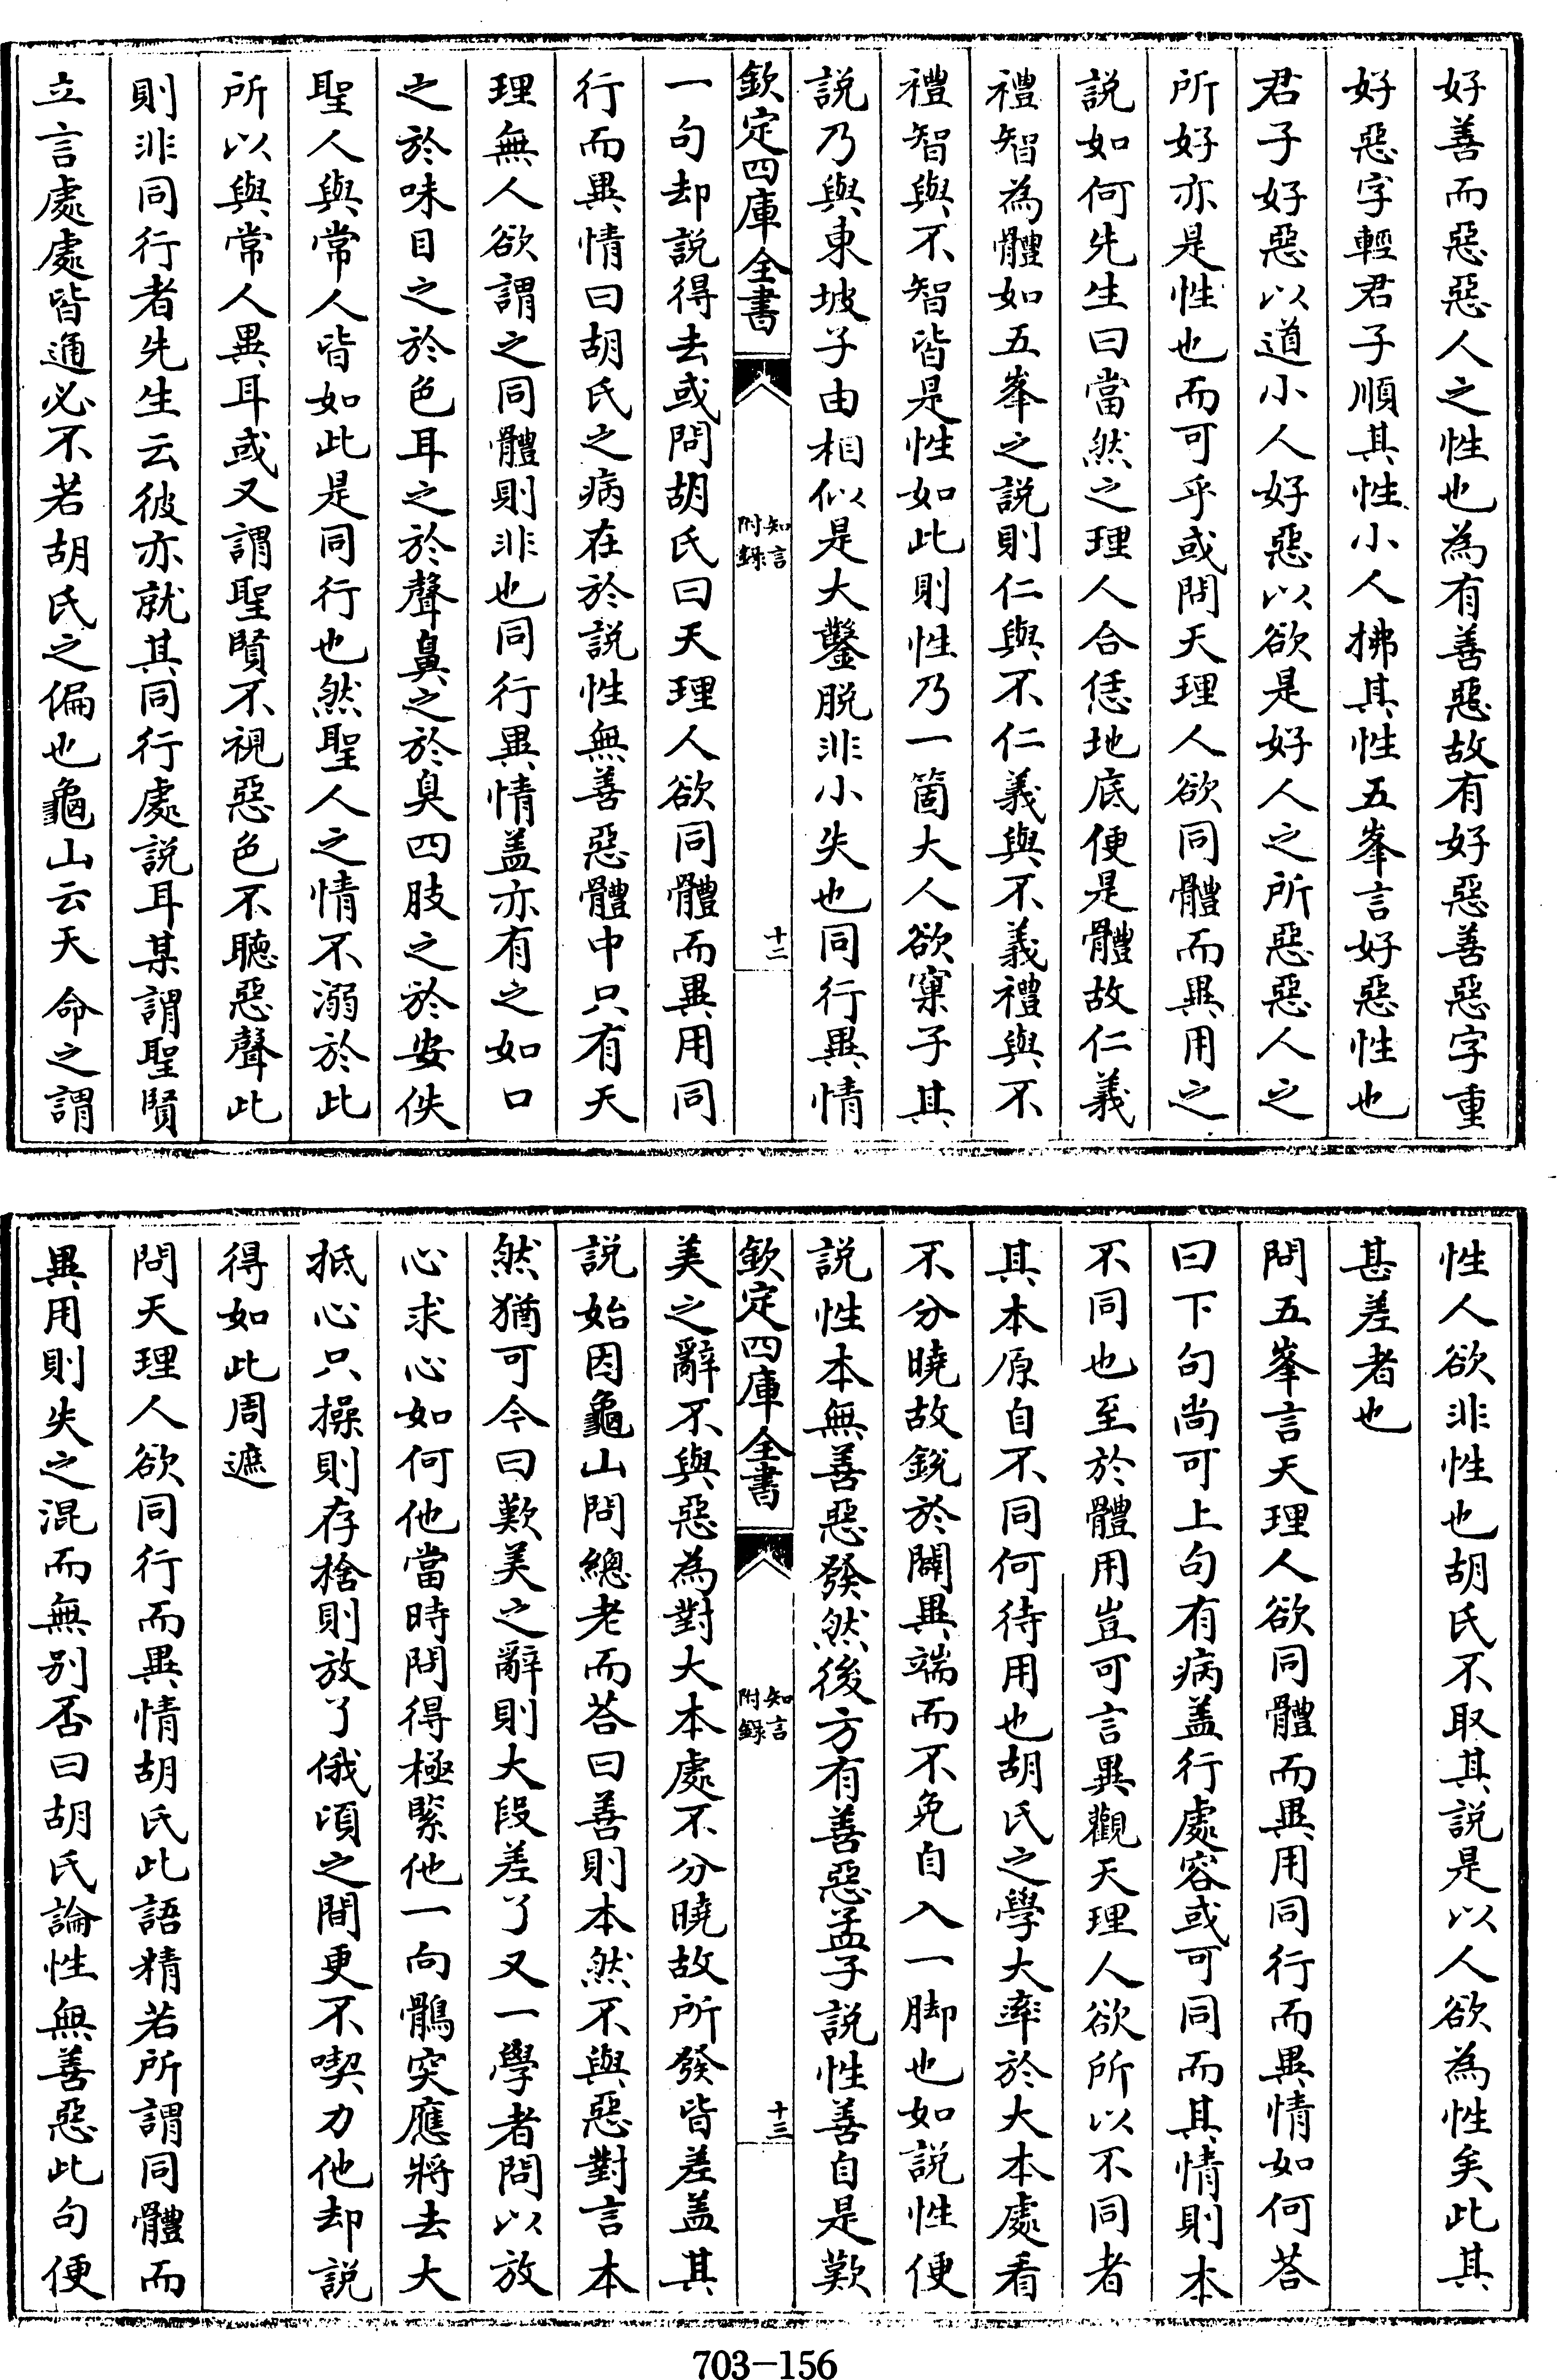 好善而惡惡人之性也為有善惡故有好惡善惡字重
好惡字輕君子順其性小人拂其性五峯言好惡性也
君子好惡以道小人好惡以欲是好人之所惡惡人之
所好亦是性也而可乎或問天理人欲同體而異用之
説如何先生曰當然之理人合恁地底便是體故仁義
禮智為體如五峯之説則仁與不仁義與不義禮與不
禮智與不智皆是性如此則性乃一箇大人欲窠子其
説乃與東坡子由相似是大鑿脱非小失也同行異情
欽定四庫全書
知言附録
十二
一句却説得去或問胡氏曰天理人欲同體而異用同
行而異情曰胡氏之病在於説性無善惡體中只有天
理無人欲謂之同體則非也同行異情盖亦有之如口
之於味目之於色耳之於聲鼻之於臭四肢之於安佚
聖人與常人皆如此是同行也然聖人之情不溺於此
所以與常人異耳或又謂聖賢不視惡色不聽惡聲此
則非同行者先生云彼亦就其同行處説耳某謂聖賢
立言處處皆通必不若胡氏之偏也龜山云天命之謂
性人欲非性也胡氏不取其説是以人欲為性矣此其
甚差者也
問五峯言天理人欲同體而異用同行而異情如何荅
曰下句尚可上句有病盖行處容或可同而其情則本
不同也至於體用豈可言異觀天理人欲所以不同者
其本原自不同何待用也胡氏之學大率於大本處看
不分曉故銳於闢異端而不免自入一脚也如説性便
説性本無善惡發然後方有善惡孟子説性善自是歎
欽定四庫全書
知言附録
十三
美之辭不與惡為對大本處不分曉故所發皆差盖其
説始因龜山問總老而荅曰善則本然不與惡對言本
然猶可今曰歎美之辭則大段差了又一學者問以放
心求心如何他當時問得極緊他一向鶻突應將去大
抵心只操則存捨則放了俄頃之間更不喫力他却説
得如此周遮
問天理人欲同行而異情胡氏此語精若所謂同體而
異用則失之混而無别否曰胡氏論性無善惡此句便
703-156